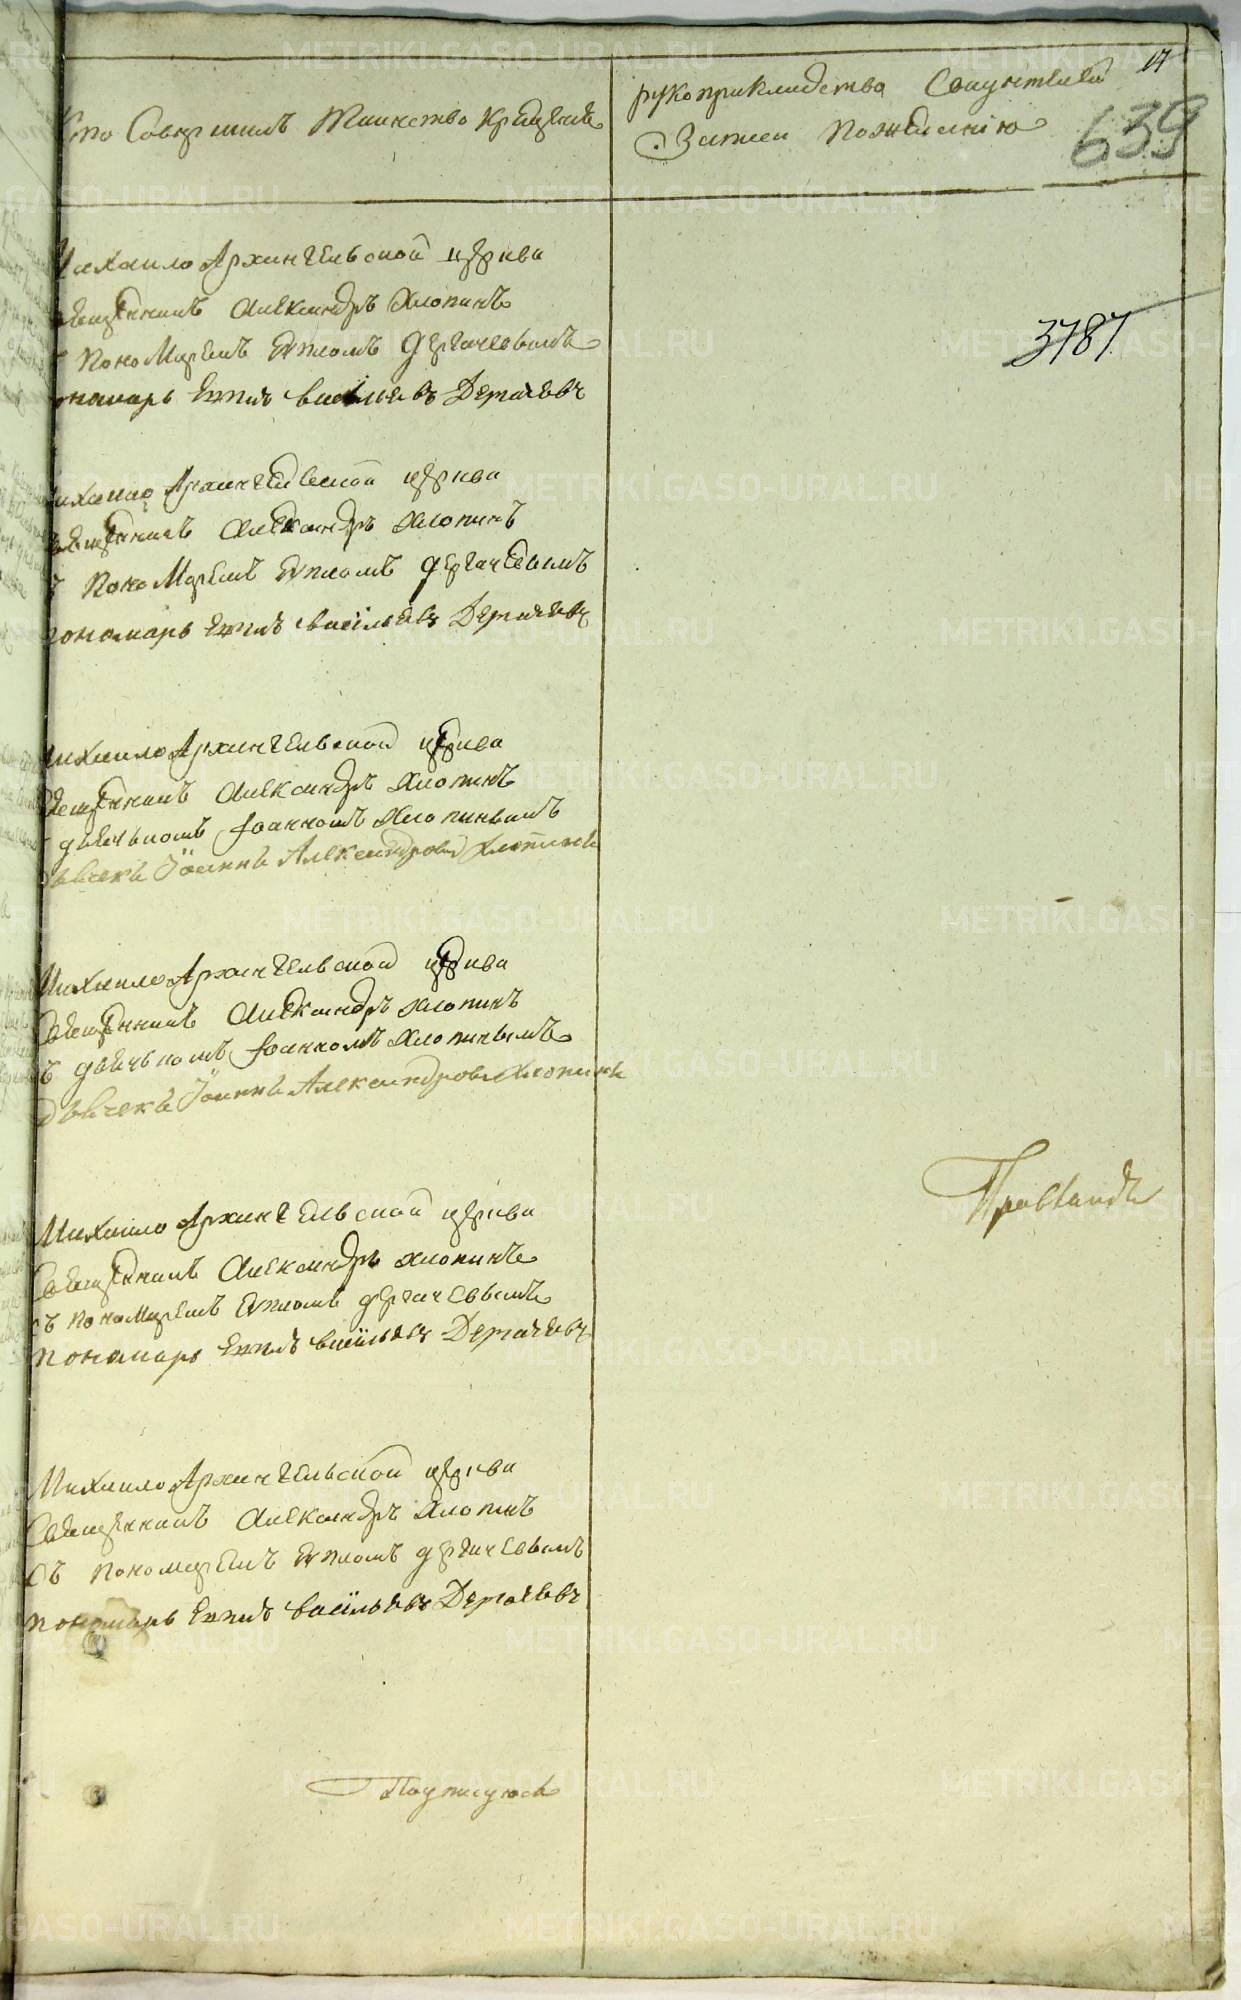 Кто Совершилъ Таинство Крещенія
рукоприкладства Свидѣтелей
Записи по желанію
17
639
3787
Михаило Архангельской церкви
священникъ Александръ Хлопинъ
съ пономаремъ Евпломъ Дергачевымъ
пономарь Евплъ Васильевъ Дергачевъ
Михаило Архангельской церкви
священникъ Александръ Хлопинъ
съ пономаремъ Евпломъ Дергачевымъ
пономарь Евплъ Васильевъ Дергачевъ
Михаило Архангельской церкви
священникъ Александръ Хлопинъ
съ дьячькомъ Іоанномъ Хлопинымъ
дьячекъ Іоаннъ Александровъ Хлопинъ
Михаило Архангельской церкви
Священникъ Александръ Хлопинъ
съ дьячькомъ Іоанномъ Хлопинымъ
дьячекъ Іоаннъ Александровъ Хлопинъ
Михаило Архангельской церкви
Священникъ Александръ Хлопинъ
съ пономаремъ Евпломъ Дергачевымъ
пономарь Евплъ Васильевъ Дергачевъ
Михаило Архангельской церкви
Священникъ Александръ Хлопинъ
Съ пономаремъ Евпломъ Дергачевымъ
пономарь Евплъ Васильевъ Дергачевъ
Подписуюсь
METRIKI.GASO-URAL.RU